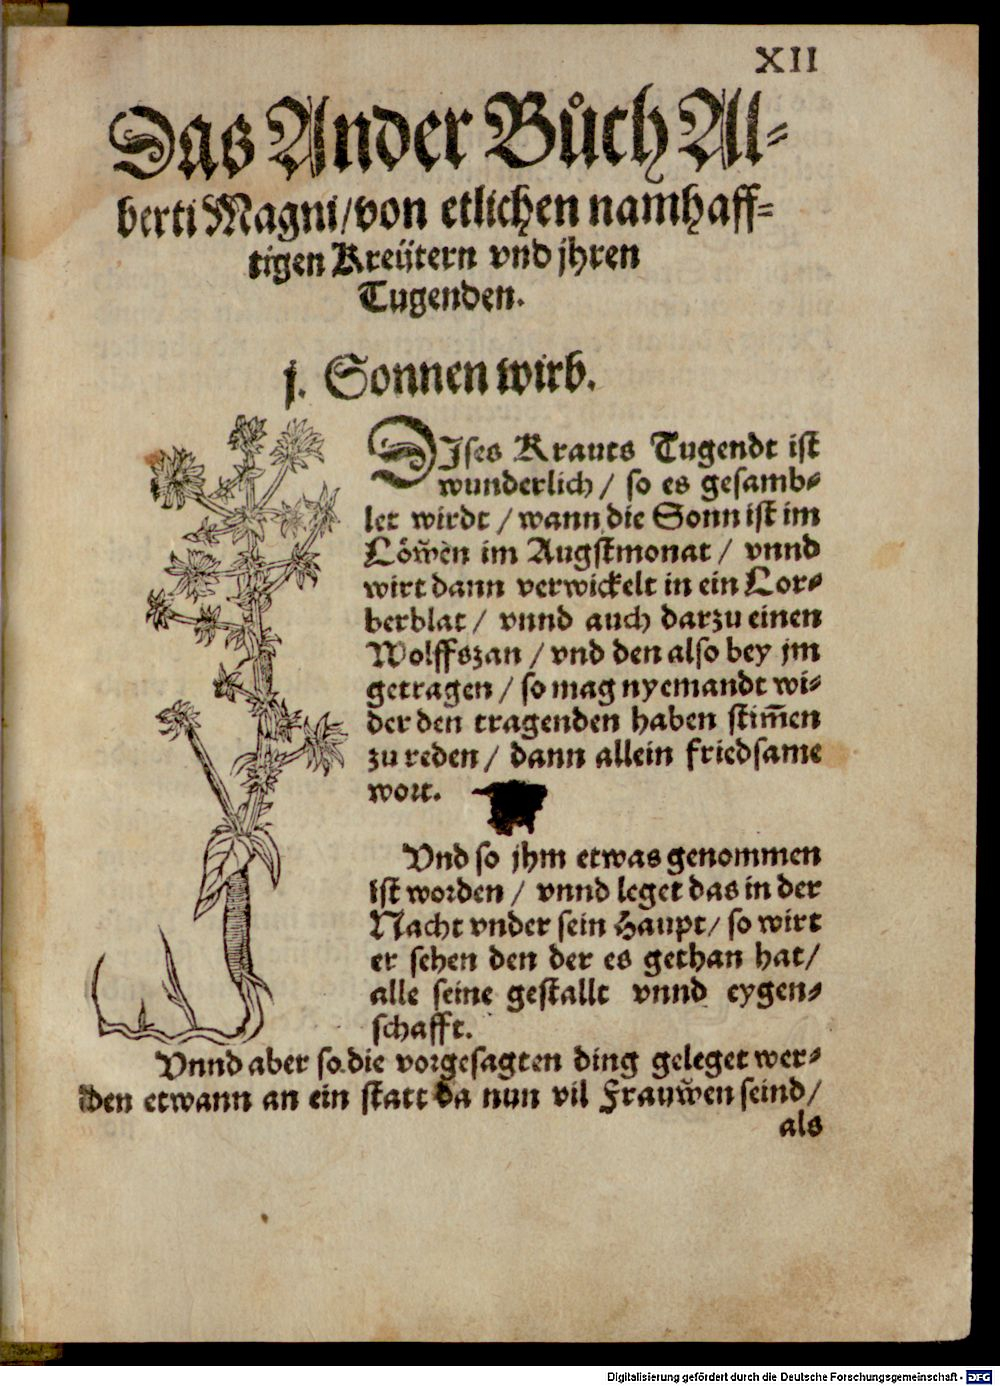 XII
Das Ander Bůch Al-
berti Magni/von etlichen namhaff-
tigen Kreütern vnd jhren
Tugenden.
j. Sonnen wirb.
DJses Krauts Tugendt ist
wunderlich / so es gesamb-
let wirdt / wann die Sonn ist im
Löw̃en im Augstmonat / vnnd
wirt dann verwickelt in ein Lor-
berblat / vnnd auch darzu einen
Wolffszan / vnd den also bey jm
getragen / so mag nyemandt wi-
der den tragenden haben stim̃en
zu reden / dann allein friedsame
wort.
Vnd so jhm etwas genommen
ist worden / vnnd leget das in der
Nacht vnder sein Haupt/ so wirt
er sehen den der es gethan hat/
alle seine gestallt vnnd eygen-
schafft.
Vnnd aber so die vorgesagten ding geleget wer-
den etwann an ein statt da nun vil Frauw̃en seind/
als
Digitalisierung gefördert durch die Deutsche Forschungsgemeinschaft - DFG